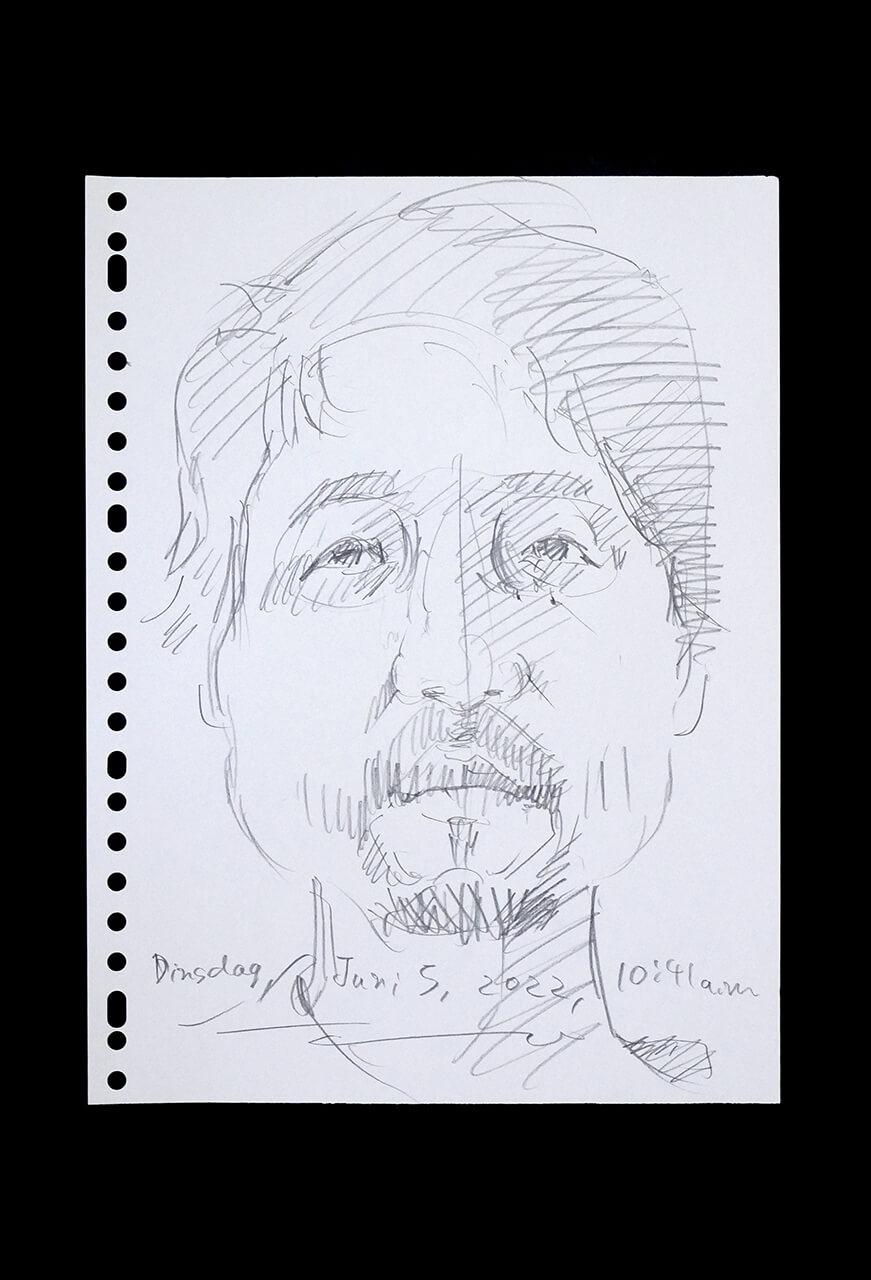 Dinsdag, Juni 5, 2022, 10:41a.m